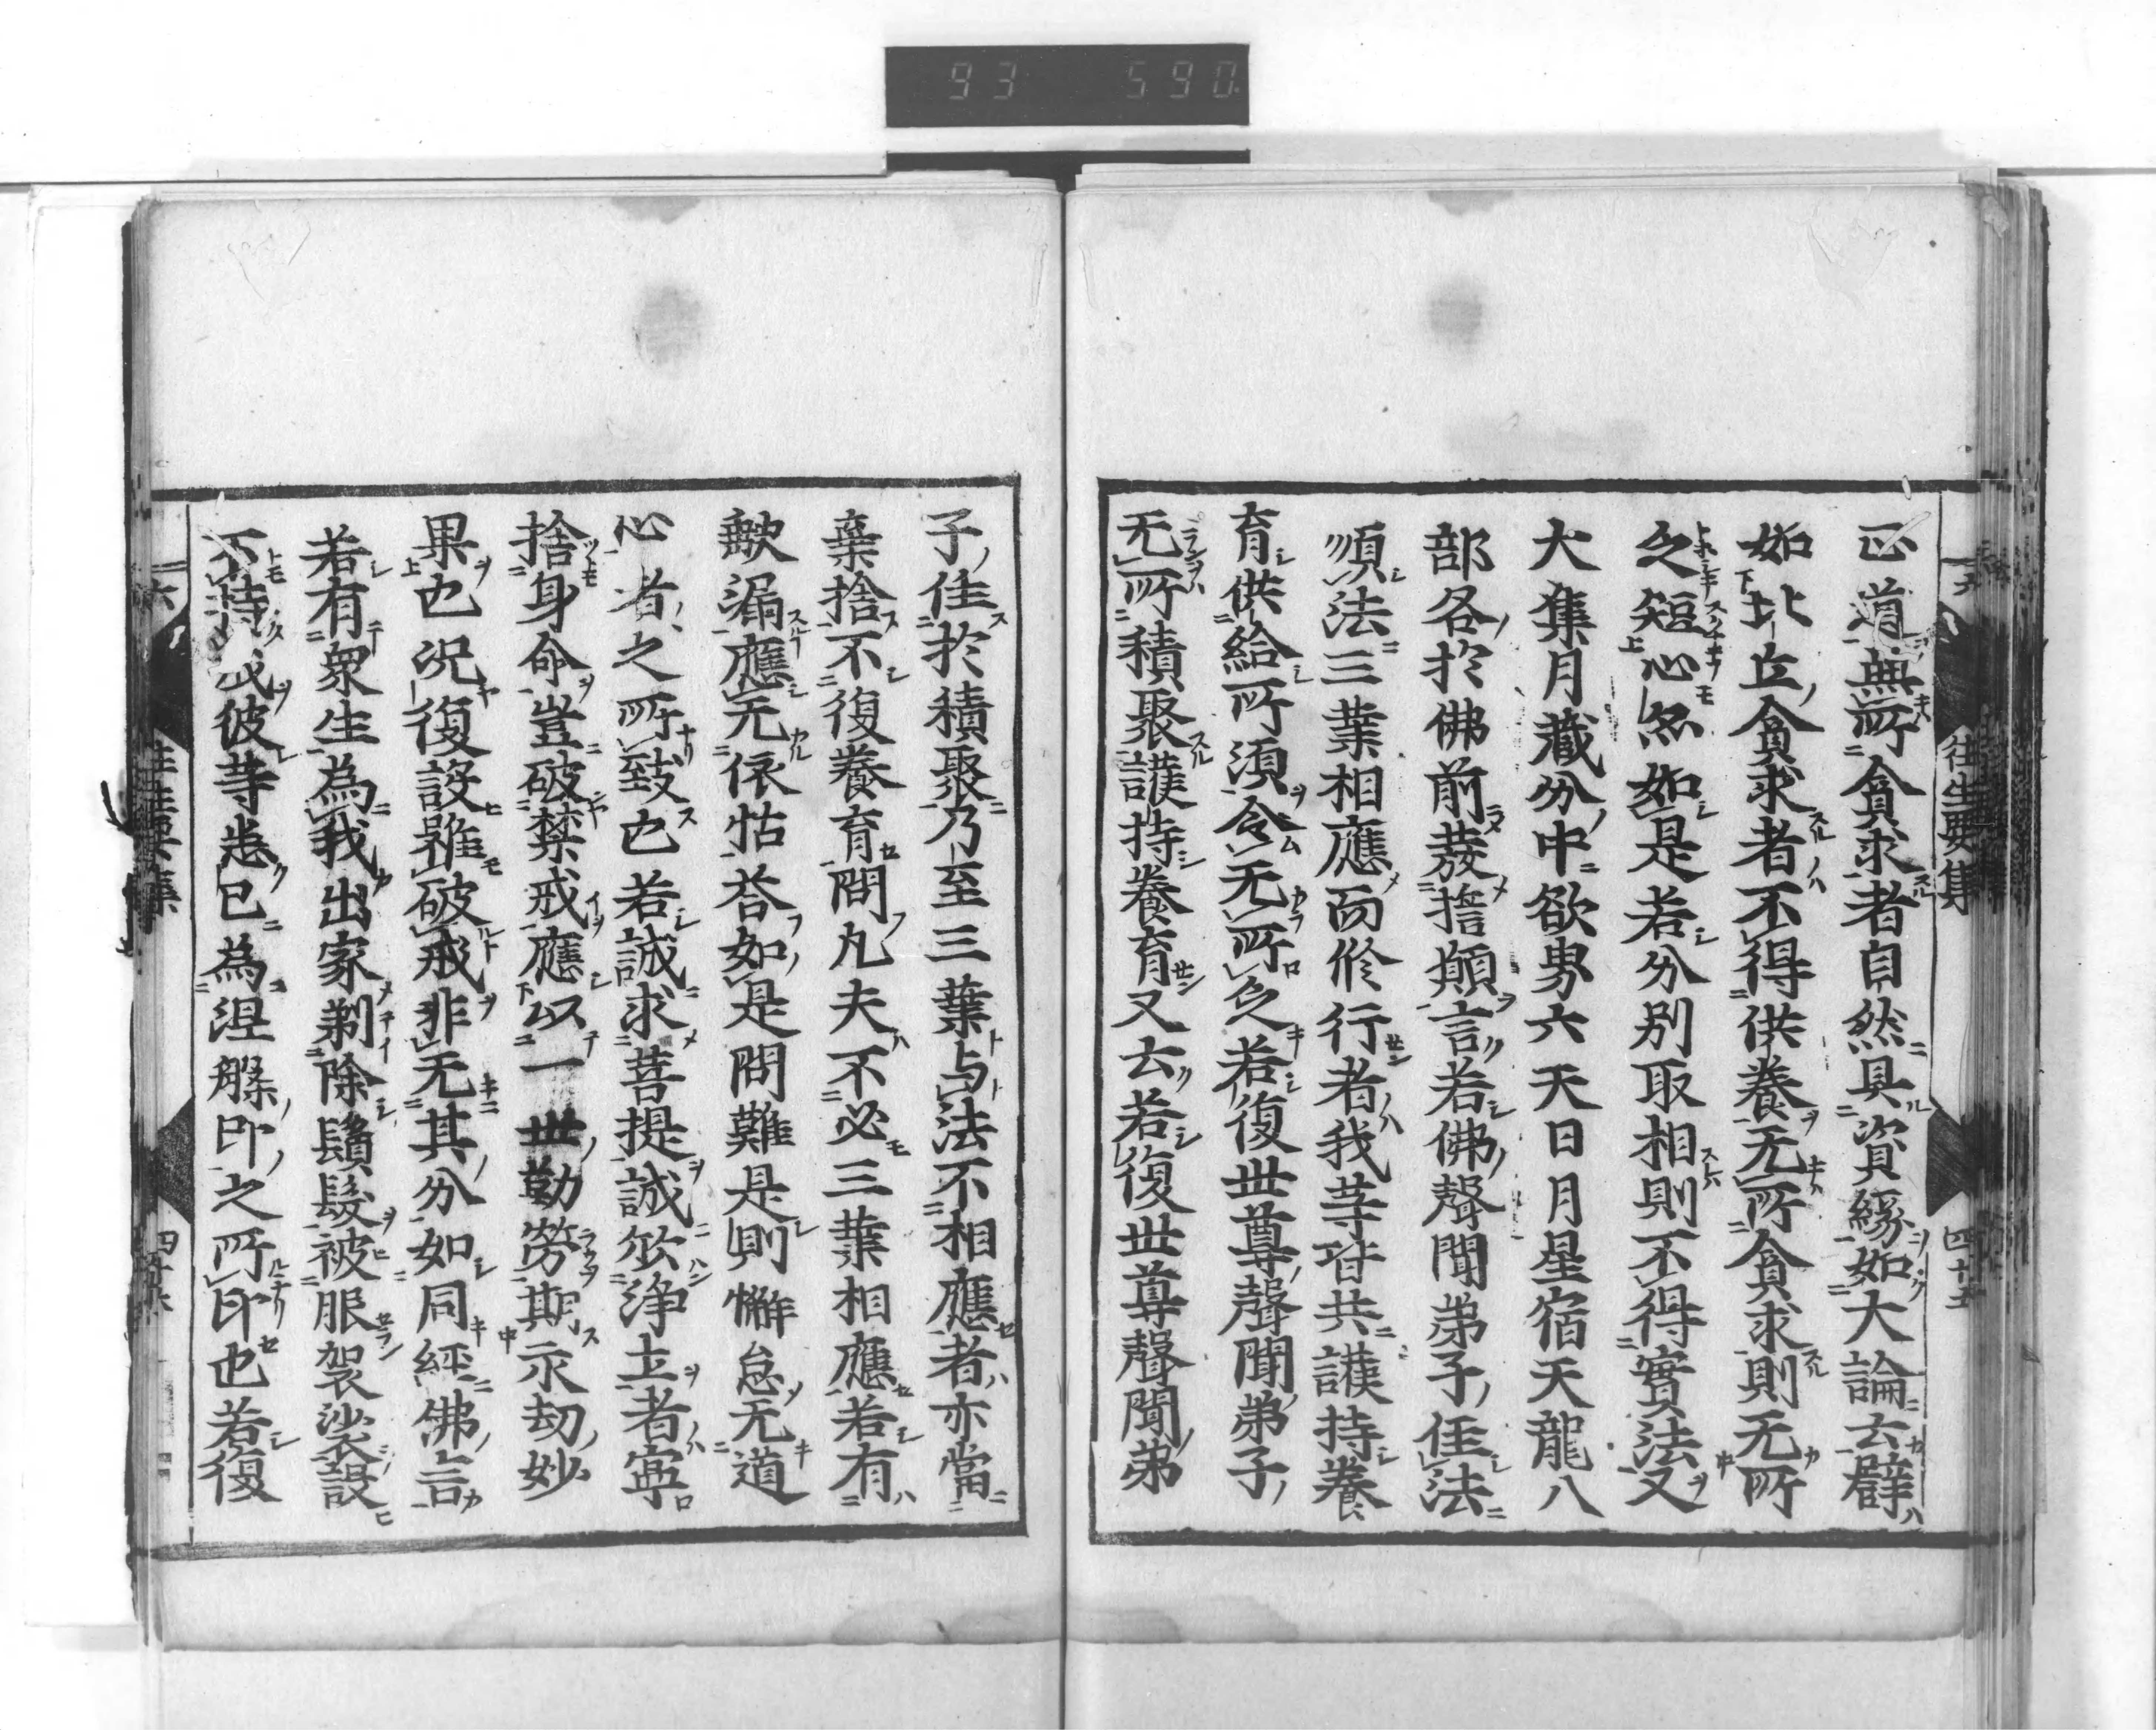 93 590
正道無所貪求者自然具資緣如大論云辟
如比丘貪求者不得供養无所貪求則无所
乏短心亦如是若分別取相則不得實法又
大集月藏分中欲界六天日月星宿天龍八
部各於佛前發誓願言若佛聲聞弟子住法
順法三業相應而修行者我等皆共護持養
育供給所須令无所乏若復世尊聲聞弟子
无所積聚護持養育又云若復世尊聲聞弟
往生要集
四十五
子住於積聚乃至三業与法不相應者亦當
棄捨不復養育問凡夫不必三業相應若有
歟漏應无依怙答如是問難是則懈怠无道
心者之所致也若誠求菩提誠欣淨土者寧
捨身命豈破禁戒應以一世勤勞期永劫妙
果也況復設雖破戒非无其分如同經佛言
若有眾生為我出家剃除鬚髮被服袈裟設
不持戒彼等悉已為涅槃印之所印也若復